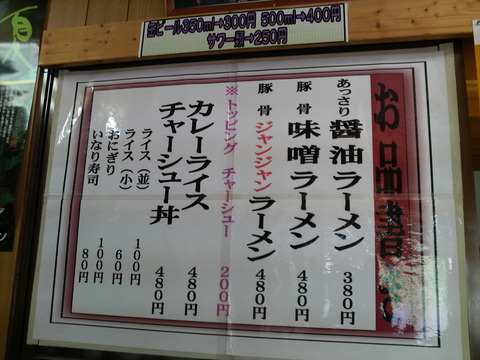 缶ビール350ml→300円 500ml→400円
サワー類→250円
お品書き
あっさり 醤油ラーメン 380円
豚骨 味噌ラーメン 480円
豚骨 ジャンジャンラーメン 480円
※トッピング チャーシュー 200円
カレーライス 480円
チャーシュー丼 480円
ライス(並) 100円
ライス(小) 60円
おにぎり 100円
いなり寿司 80円